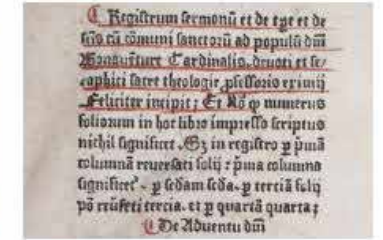 Registrum sermonū et de tꝑe et de
sctīs cū cōmuni sanctorū ad populū dn̄i
Bonauēture Cardinalis, deuoti et se⸗
raphici sacre theologie ꝓfessoris eximij
Feliciter incipit; Et Nō ꝙ numerus
foliorum in hoc libro impresso scriptus
nichil significet. Sꝫ in registro ꝑ pꝛimā
columnā reuersati folij: pꝛima columna
significet᷑. ꝑ scdam scda. ꝑ terciā folij
pō tercia. et ꝑ quartā quarta:
De Aduentu dn̄i